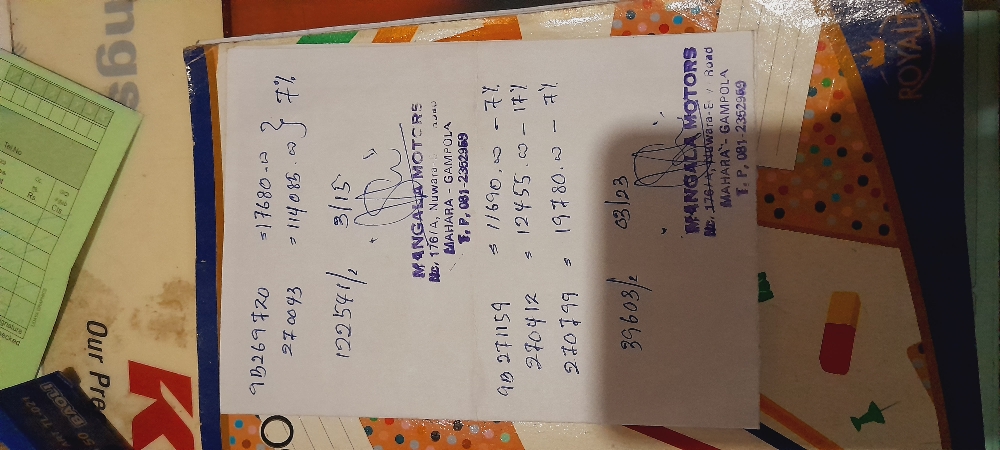 9B269720 =17680.00 } 7%
270093 =114085.00
122541/2 3/15
MANGALA MOTORS
No, 176/A, Nuwara Road
MAHARA - GAMPOLA
T. P, 081-2352969
9B271159 = 11690.00 - 7%
270412 = 12455.00 - 17%
270799 = 19780.00 - 7%
39603/2 03/23
MANGALA MOTORS
No, 176/A, Nuwara-E / Road
MAHARA - GAMPOLA
T. P, 081-2352969
ngs
Our Pre
K
ROYAL
Tel.No
Rs
Cts